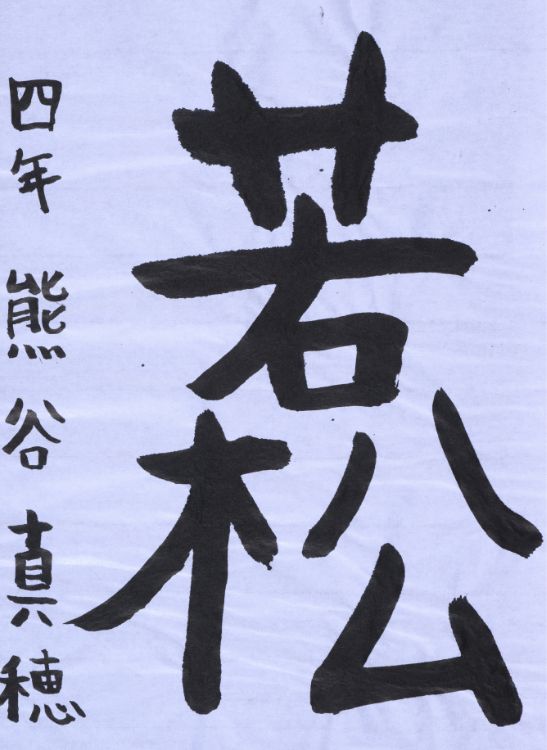 若松
四年 熊谷真穂